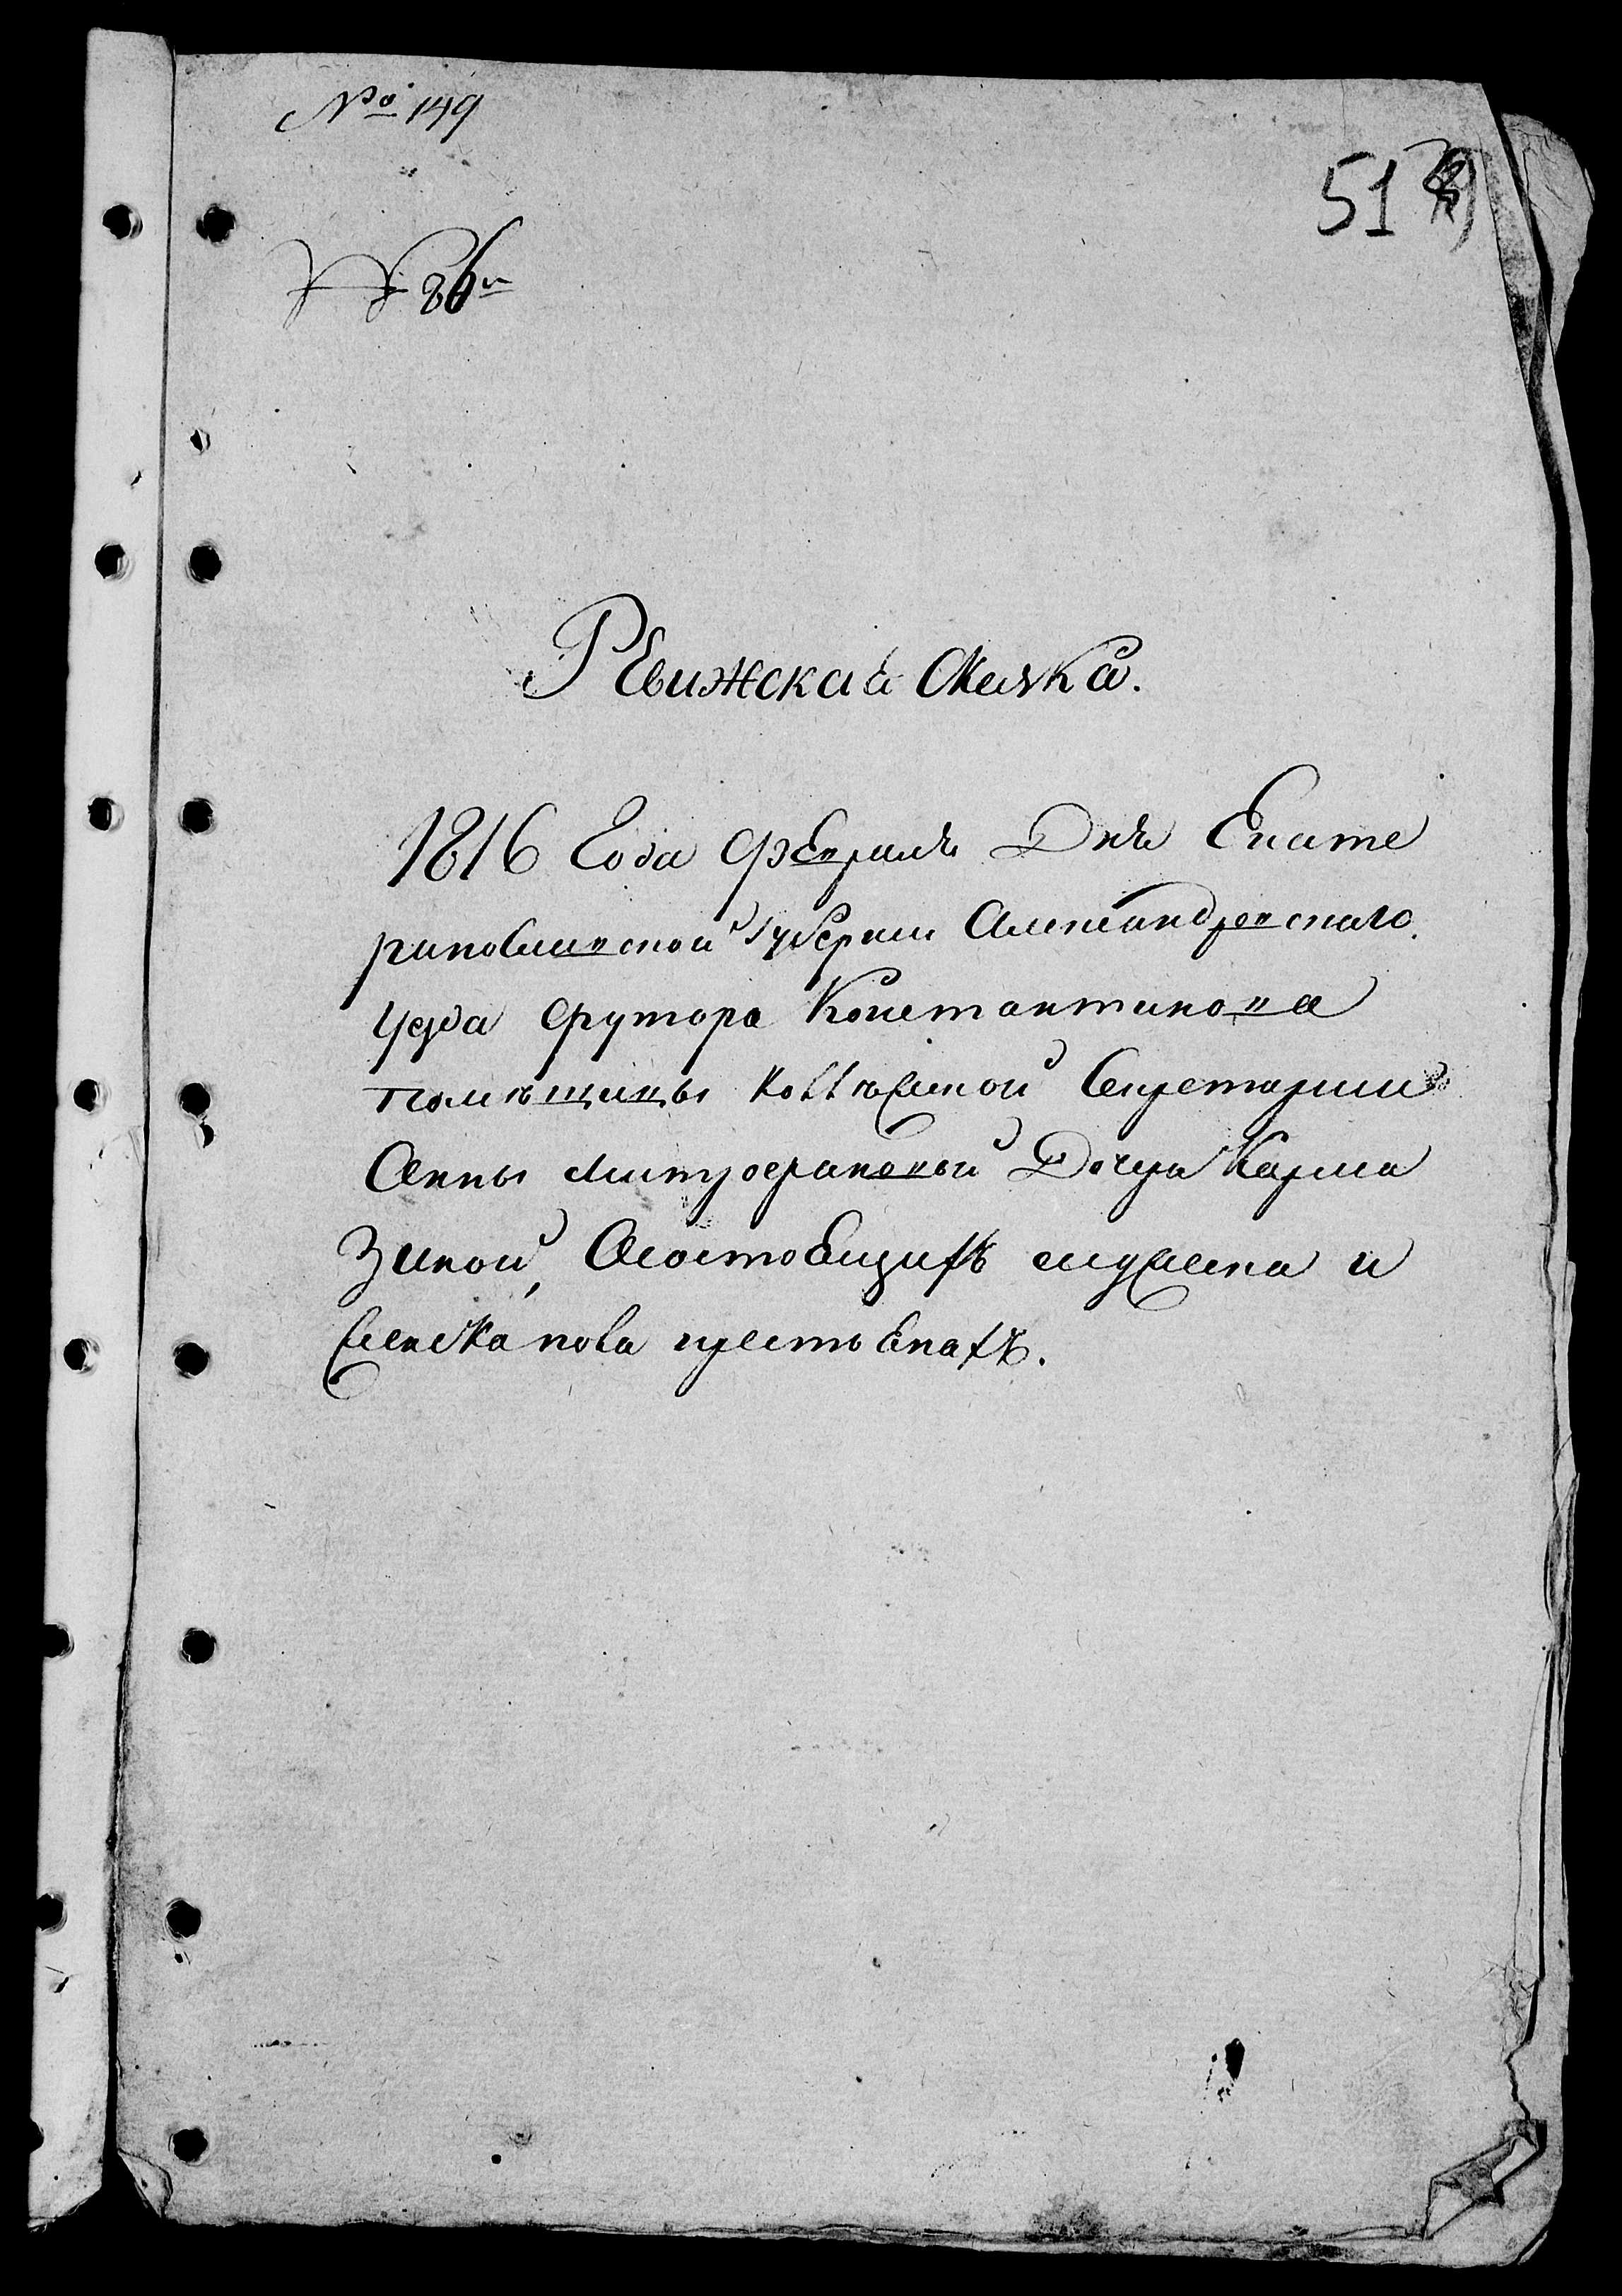 № 149
51
№ 86й
Ревижская Скаска.
1816 Года февраля Дня Екате
ринославской губернии Александровскаго
уезда футора Константиновка
помѣщицы коллѣжской Секретарши
Анны митрофановой Дочери Карма
зиной, Осостоящихъ мужеска и
женска пола крестьянахъ.